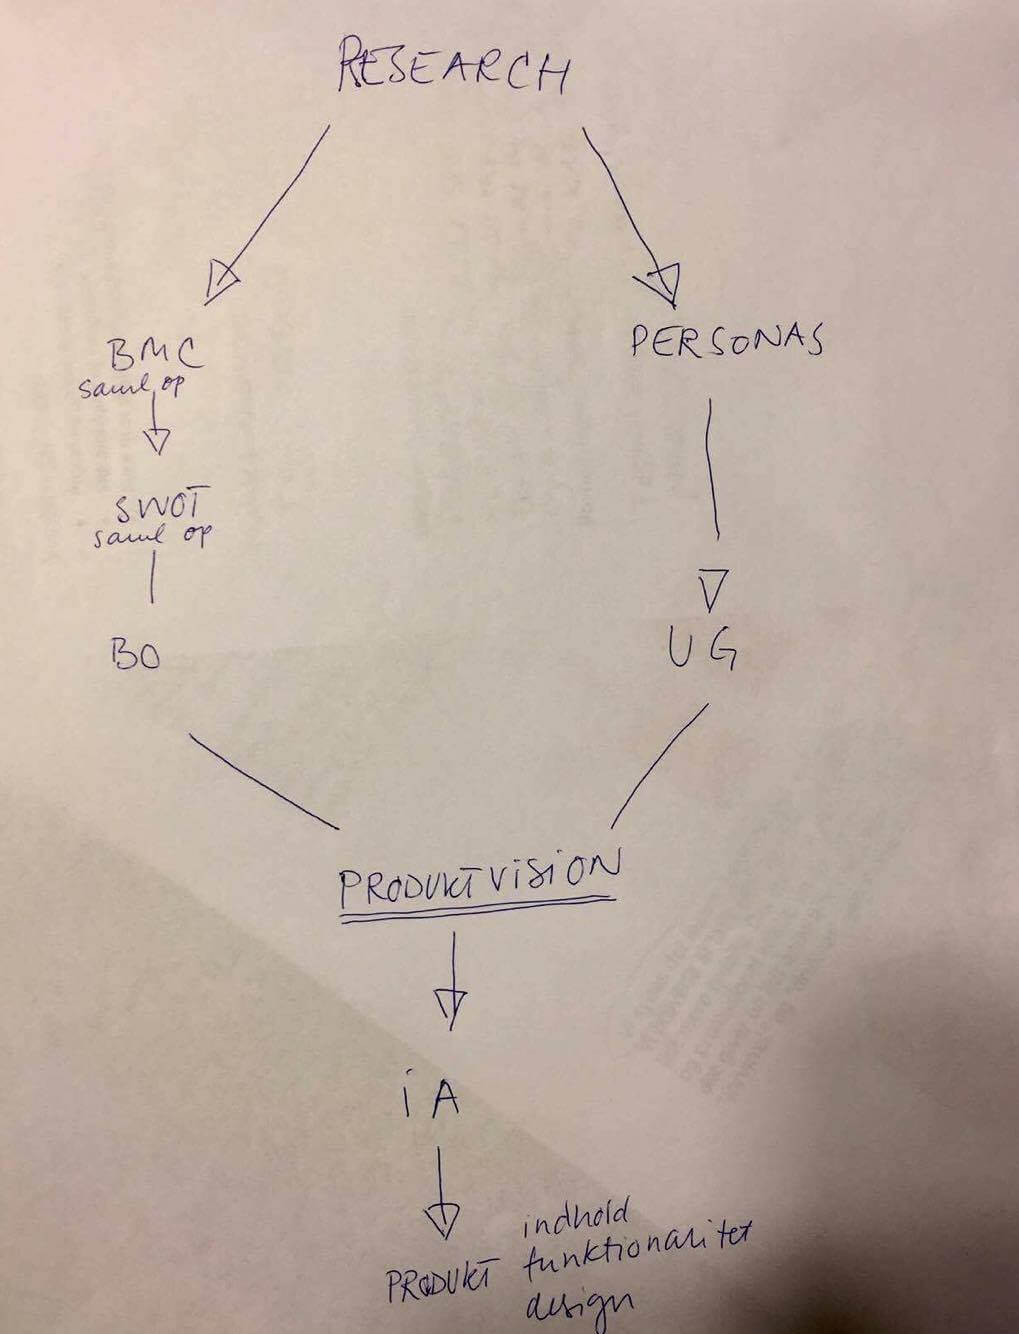 RESEARCH
BMC
saml op
SWOT
saml op
BO
PERSONAS
UG
PRODUKTVISION
iA
PRODUKT
indhold
funktionalitet
design